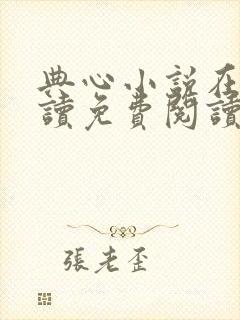 典心小說在
讀免費閱讀
張老歪